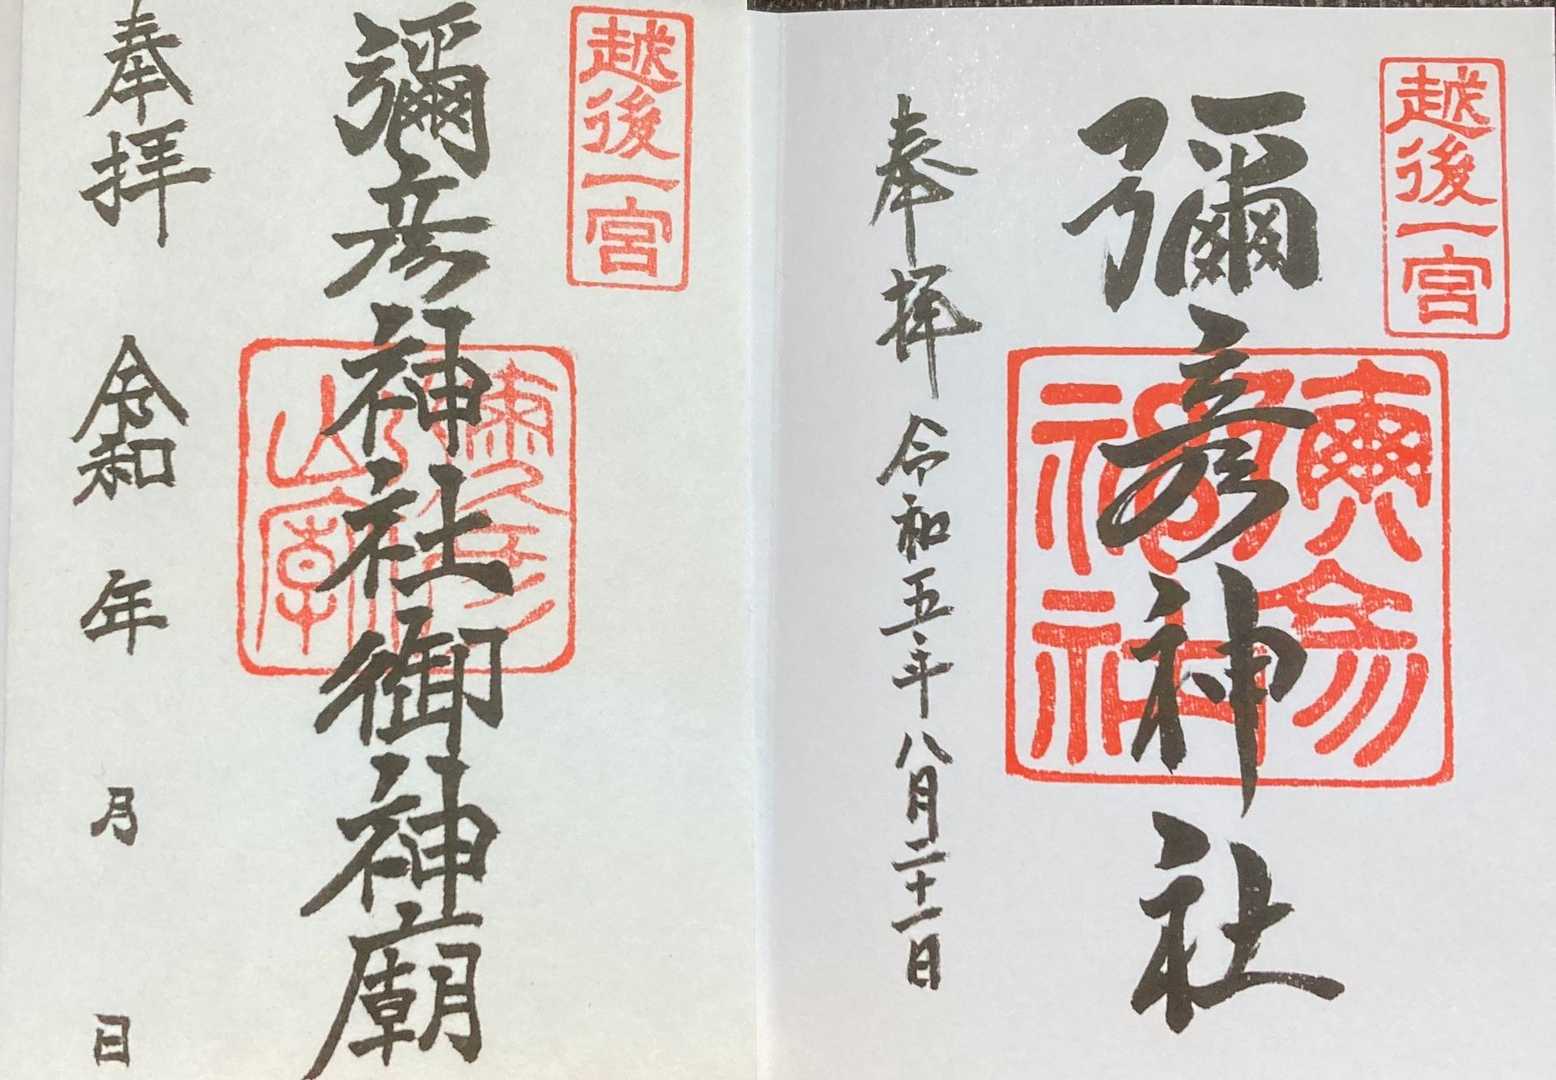 越後一宮
彌彦神社
奉拝 令和五年八月二十一日
越後一宮
彌彦神社御神廟
奉拝 令和 年 月 日